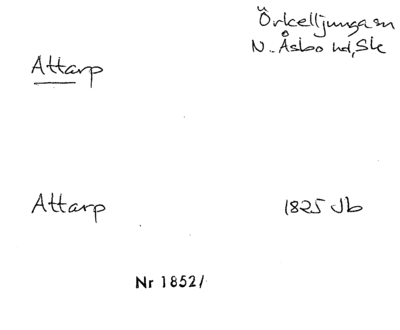 Örkelljunga sn
N. Åsbo hd, Sk
Attarp
Attarp 1825 Jb
Nr 1852/